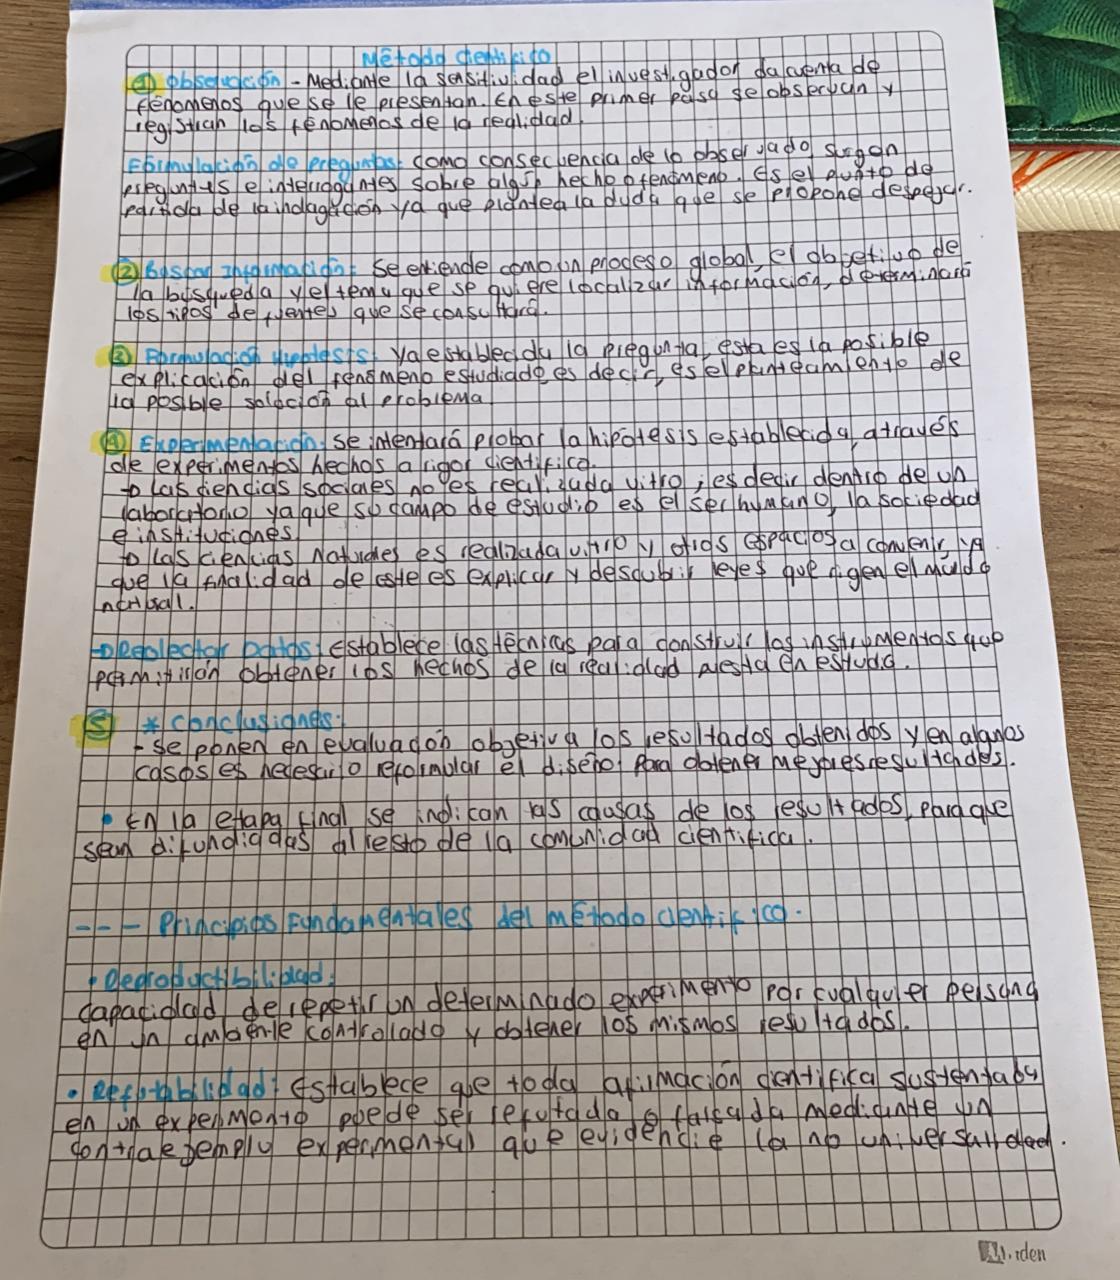 Método científico
① Observación - Mediante la sensitividad el investigador da cuenta de
fenomenos que se le presentan. En este primer paso se observan y
registran los fenomenos de la realidad.
Formulación de preguntas: como consecuencia de lo observado, surgen
preguntas e interrogantes sobre algún hecho o fenómeno. Es el punto de
partida de la indagación ya que plantea la duda que se propone despejar.
② Buscar Información: Se entiende como un proceso global, el objetivo de
la búsqueda y el tema que se quiere localizar información, determinará
los tipos de fuentes que se consultará.
③ Formulación hipotesis: Ya establecida la pregunta, esta es la posible
explicación del fenómeno estudiado es decir, es el planteamiento de
la posible solución al problema
④ Experimentación: Se intentará probar la hipótesis establecida, através
de experimentos hechos a rigor científico.
→ Las ciencias sociales no es realizada vitro, es decir dentro de un
laboratorio ya que su campo de estudio es el ser humano, la sociedad
e instituciones.
→ Las ciencias naturales es realizada vitro y otros espacios a convenir, ya
que la finalidad de este es explicar y descubrir leyes que rigen el mundo
natural.
→ Recolectar Datos: Establece las técnicas para construir los instrumentos que
permitirón obtener los hechos de la realidad puesta en estudio.
5 * Conclusiones:
- Se ponen en evaluación objetiva los resultados obtenidos y en algunos
casos es necesario reformular el diseño para obtener mejores resultados.
• En la etapa final se indican las causas de los resultados, para que
sean difundidas al resto de la comunidad científica.
--- Principios Fundamentales del método científico.
• Reproductibilidad:
Capacidad de repetir un determinado experimento por cualquier persona
en un ambiente controlado y obtener los mismos resultados.
• Refutabilidad: Establece que toda afirmación científica sustentaba
en un experimento puede ser refutada o falseada mediante un
contraejemplo experimental que evidencie la no universalidad.